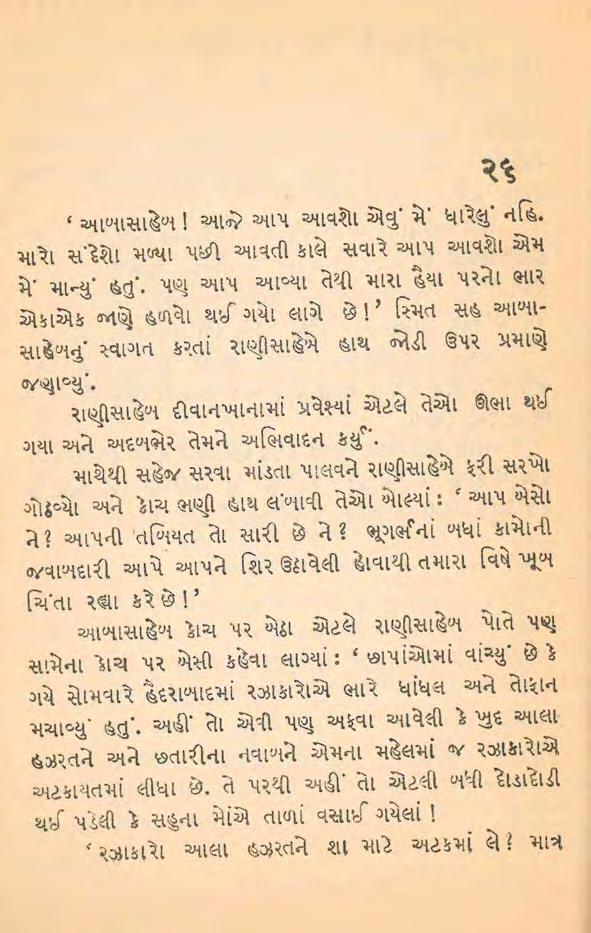 ૨૬
‘ આબાસાહેબ ! આજે આપ આવશો એવું મેં ધારેલું નહિ.
મારો સંદેશો મળ્યા પછી આવતી કાલે સવારે આપ આવશો એમ
મેં માન્યું હતું. પણ આપ આવ્યા તેથી મારા હૈયા પરનો ભાર
એકાએક જાણે હળવો થઈ ગયો લાગે છે ! ’ સ્મિત સહ આબા-
સાહેબનું સ્વાગત કરતાં રાણીસાહેબે હાથ જોડી ઉપર પ્રમાણે
જણાવ્યું.
રાણીસાહેબ દીવાનખાનામાં પ્રવેશ્યાં એટલે તેઓ ઊભા થઈ
ગયા અને અદબભેર તેમને અભિવાદન કર્યું.
માથેથી સહેજ સરવા માંડતા પાલવને રાણીસાહેબે ફરી સરખો
ગોઠવ્યો અને કોચ ભણી હાથ લંબાવી તેઓ બોલ્યાં : ‘ આપ બેસો
ને ? આપની તબિયત તો સારી છે ને ? ભૂગર્ભનાં બધાં કામોની
જવાબદારી આપે આપને શિર ઉઠાવેલી હોવાથી તમારા વિષે ખૂબ
ચિંતા રહ્યા કરે છે ! ’
આબાસાહેબ કોચ પર બેઠા એટલે રાણીસાહેબ પોતે પણ
સામેના કોચ પર બેસી કહેવા લાગ્યાં : ‘ છાપાંઓમાં વાંચ્યું છે કે
ગયે સોમવારે હૈદરાબાદમાં રઝાકારોએ ભારે ધાંધલ અને તોફાન
મચાવ્યું હતું. અહીં તો એવી પણ અફવા આવેલી કે ખુદ આલા
હઝરતને અને છતારીના નવાબને એમના મહેલમાં જ રઝાકારોએ
અટકાયતમાં લીધા છે. તે પરથી અહીં તો એટલી બધી દોડાદોડી
થઈ પડેલી કે સહુના મોંએ તાળાં વસાઈ ગયેલાં !
‘ રઝાકારો આલા હઝરતને શા માટે અટકમાં લે ? માત્ર